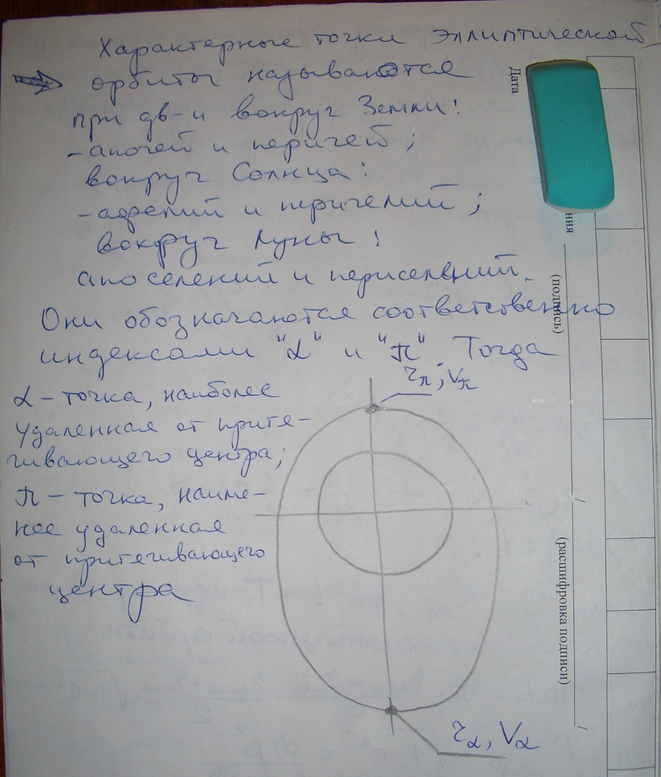 Характерные точки эллиптической
орбиты называются
при дв-и вокруг Земли:
- апогей и перигей;
вокруг Солнца:
- афелий и перигелий;
вокруг Луны:
апоселений и периселений.
Они обозначаются соответственно
индексами "α" и "π". Тогда
α - точка, наиболее
удаленная от притя-
гивающего центра;
π - точка, наиме-
нее удаленная
от притягивающего
центра
rπ, Vπ
rα, Vα
Дата
ния
(подпись)
(расшифровка подписи)